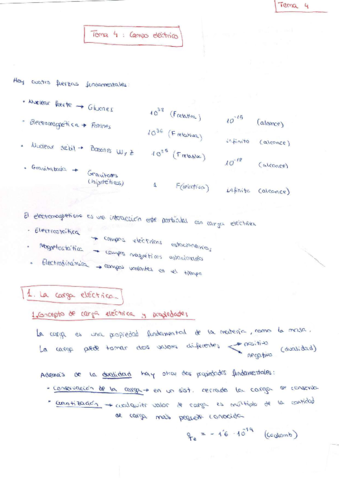 Tema 4
Tema 4: Campo eléctrico
Hay cuatro fuerzas fundamentales:
• Nuclear fuerte → Gluones 10³⁸ (F relativa) 10⁻¹⁵ (alcance)
• Electromagnética → Fotones 10³⁶ (F relativa) infinito (alcance)
• Nuclear débil → Bosones W, Z 10²⁵ (F relativa) 10⁻¹⁸ (alcance)
• Gravitatoria → Gravitones (hipotéticos) 1 F(relativa) infinito (alcance)
El electromagnetismo es una interacción entre partículas con carga eléctrica
• Electrostática → campos eléctricos estacionarios
• Magnetostática → campos magnéticos estacionarios
• Electrodinámica → campos variables en el tiempo
1. La carga eléctrica
Concepto de carga eléctrica y propiedades
La carga es una propiedad fundamental de la materia, como la masa.
La carga puede tomar dos valores diferentes positivo negativo (dualidad)
Además de la dualidad hay otras dos propiedades fundamentales:
• conservación de la carga → en un sist. cerrado la carga se conserva
• cuantización → cualquier valor de carga es múltiplo de la cantidad
de carga más pequeña conocida
qₑ = - 1'6 · 10⁻¹⁹ (coulomb)